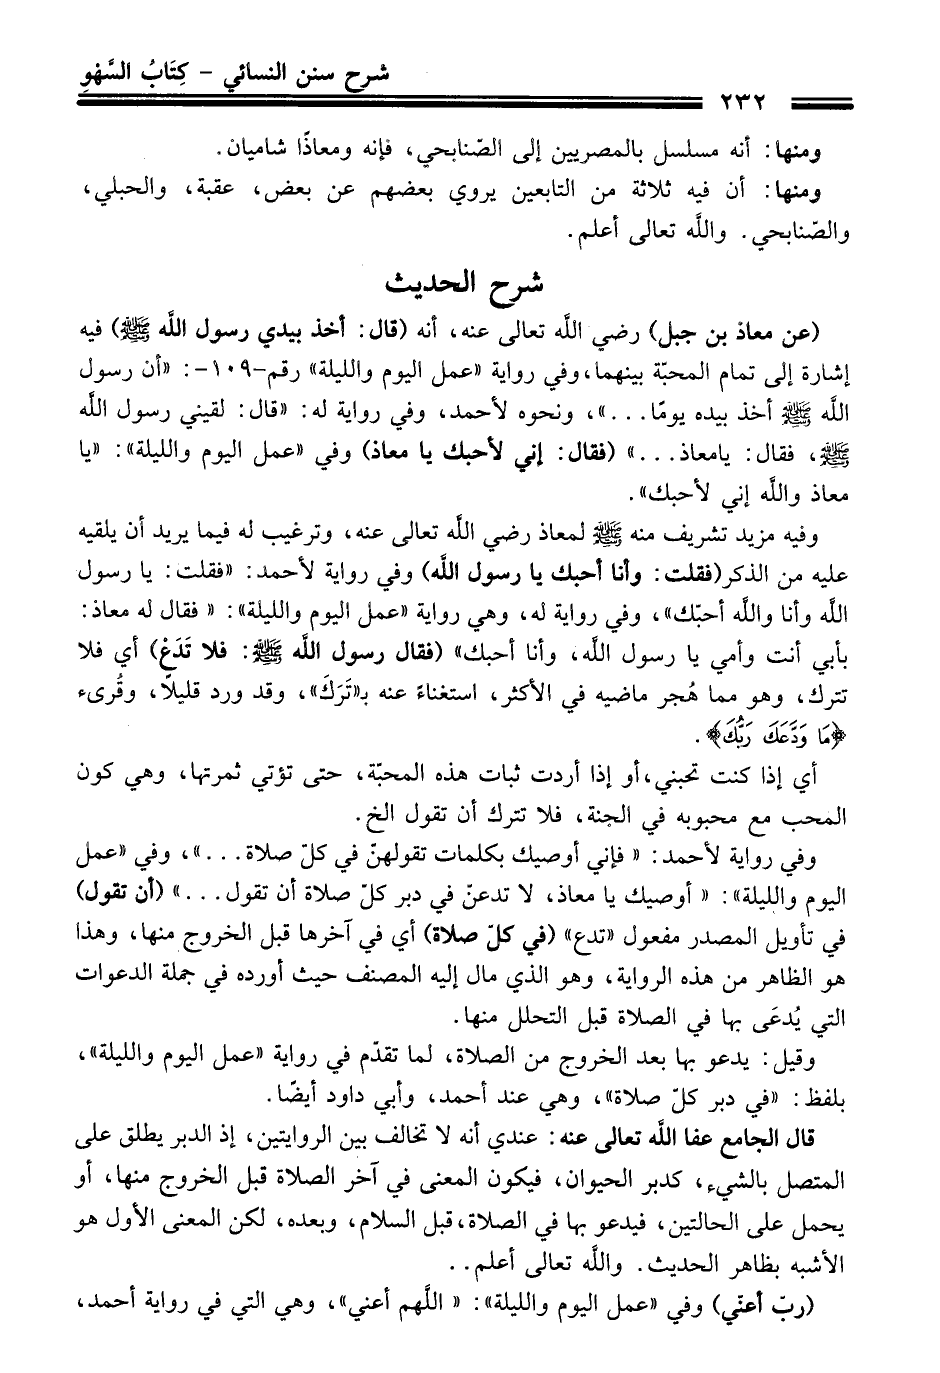 شرح سنن النسائي - كِتَابُ السَّهْوِ
٢٣٢
ومنها: أنه مسلسل بالمصريين إلى الصّنابحي، فإنه ومعاذًا شاميان.
ومنها: أن فيه ثلاثة من التابعين يروي بعضهم عن بعض، عقبة، والحبلي،
والصّنابحي. واللَّه تعالى أعلم.
شرح الحديث
(عن معاذ بن جبل) رضي اللَّه تعالى عنه، أنه (قال: أخذ بيدي رسول اللَّه ﷺ) فيه
إشارة إلى تمام المحبّة بينهما،وفي رواية «عمل اليوم والليلة» رقم-١٠٩-: «أن رسول
اللَّه ﷺ أخذ بيده يومًا...»، ونحوه لأحمد، وفي رواية له: «قال: لقيني رسول اللَّه
ﷺ، فقال: يامعاذ...» (فقال: إني لأحبك يا معاذ) وفي «عمل اليوم والليلة»: «يا
معاذ واللَّه إني لأحبك».
وفيه مزيد تشريف منه ﷺ لمعاذ رضي اللَّه تعالى عنه، وترغيب له فيما يريد أن يلقيه
عليه من الذكر(فقلت: وأنا أحبك يا رسول اللَّه) وفي رواية لأحمد: «فقلت: يا رسول
اللَّه وأنا واللَّه أحبّك»، وفي رواية له، وهي رواية «عمل اليوم والليلة»: « فقال له معاذ:
بأبي أنت وأمي يا رسول اللَّه، وأنا أحبك» (فقال رسول اللَّه ﷺ: فلا تَدَعْ) أي فلا
تترك، وهو مما هُجر ماضيه في الأكثر، استغناءً عنه بـ«تَرَكَ»، وقد ورد قليلًا، وقُرىء
﴿مَا وَدَعَكَ رَبُّكَ﴾.
أي إذا كنت تحبني،أو إذا أردت ثبات هذه المحبّة، حتى تؤتي ثمرتها، وهي كون
المحب مع محبوبه في الجنة، فلا تترك أن تقول الخ.
وفي رواية لأحمد: « فإني أوصيك بكلمات تقولهنّ في كلّ صلاة...»، وفي «عمل
اليوم والليلة»: « أوصيك يا معاذ، لا تدعنّ في دبر كلّ صلاة أن تقول...» (أن تقول)
في تأويل المصدر مفعول «تدع» (في كلّ صلاة) أي في آخرها قبل الخروج منها، وهذا
هو الظاهر من هذه الرواية، وهو الذي مال إليه المصنف حيث أورده في جملة الدعوات
التي يُدعَى بها في الصلاة قبل التحلل منها.
وقيل: يدعو بها بعد الخروج من الصلاة، لما تقدّم في رواية «عمل اليوم والليلة»،
بلفظ: «في دبر كلّ صلاة»، وهي عند أحمد، وأبي داود أيضًا.
قال الجامع عفا اللَّه تعالى عنه: عندي أنه لا تخالف بين الروايتين، إذ الدبر يطلق على
المتصل بالشيء، كدبر الحيوان، فيكون المعنى في آخر الصلاة قبل الخروج منها، أو
يحمل على الحالتين، فيدعو بها في الصلاة،قبل السلام، وبعده، لكن المعنى الأول هو
الأشبه بظاهر الحديث. واللَّه تعالى أعلم..
(ربّ أعنّي) وفي «عمل اليوم والليلة»: « اللَّهم أعني»، وهي التي في رواية أحمد،